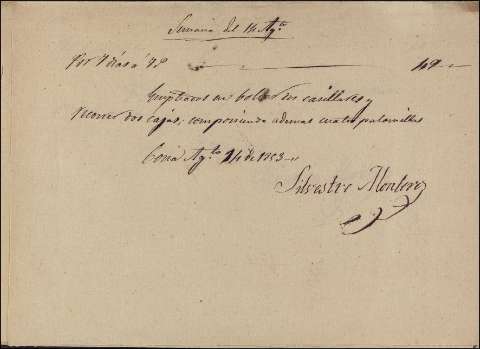 Semana del 14 Ag.to
Por 7 días á 7 r.s 49
Empleados en colocar dos casilleros y
recorrer dos cajas, componiendo ademas cuatro palomillas
Coria Ag.to 14 de 1853
Silvestre Montero